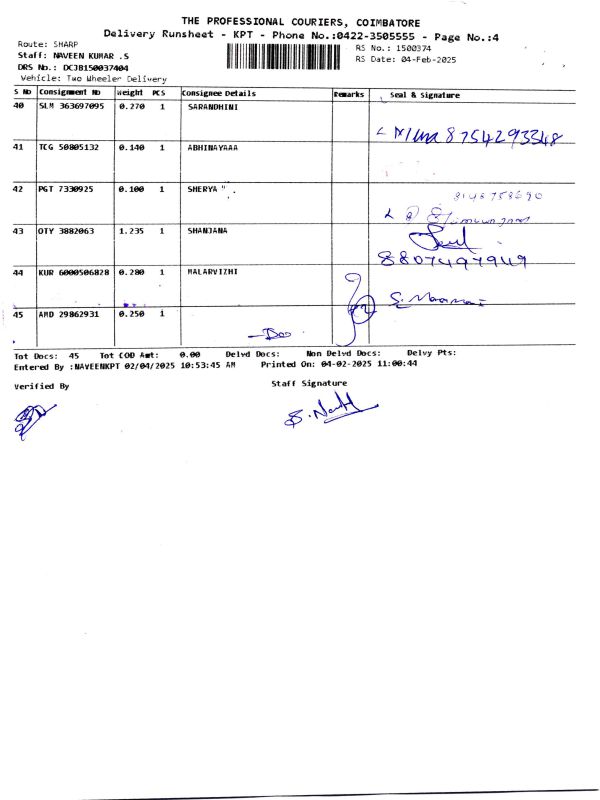 THE PROFESSIONAL COURIERS, COIMBATORE
Delivery Runsheet - KPT - Phone No.:0422-3505555 - Page No.:4
Route: SHARP
RS No.: 1500374
Staff: NAVEEN KUMAR .S
RS Date: 04-Feb-2025
DRS No.: DCJB150037404
Vehicle: Two Wheeler Delivery
S No Consignment No Weight PCS Consignee Details Remarks Seal & Signature
40 SLM 363697095 0.270 1 SARANDHINI
8754293348
41 TCG 50805132 0.140 1 ABHINAYAAA
42 PGT 7330925 0.100 1 SHERYA
43 OTY 3882063 1.235 1 SHANJANA
8807497949
44 KUR 6000506828 0.280 1 MALARVIZHI
45 AMD 29862931 0.250 1
Tot Docs: 45 Tot COD Amt: 0.00 Delvd Docs: Non Delvd Docs: Delvy Pts:
Entered By :NAVEENKPT 02/04/2025 10:53:45 AM Printed On: 04-02-2025 11:00:44
Verified By
Staff Signature